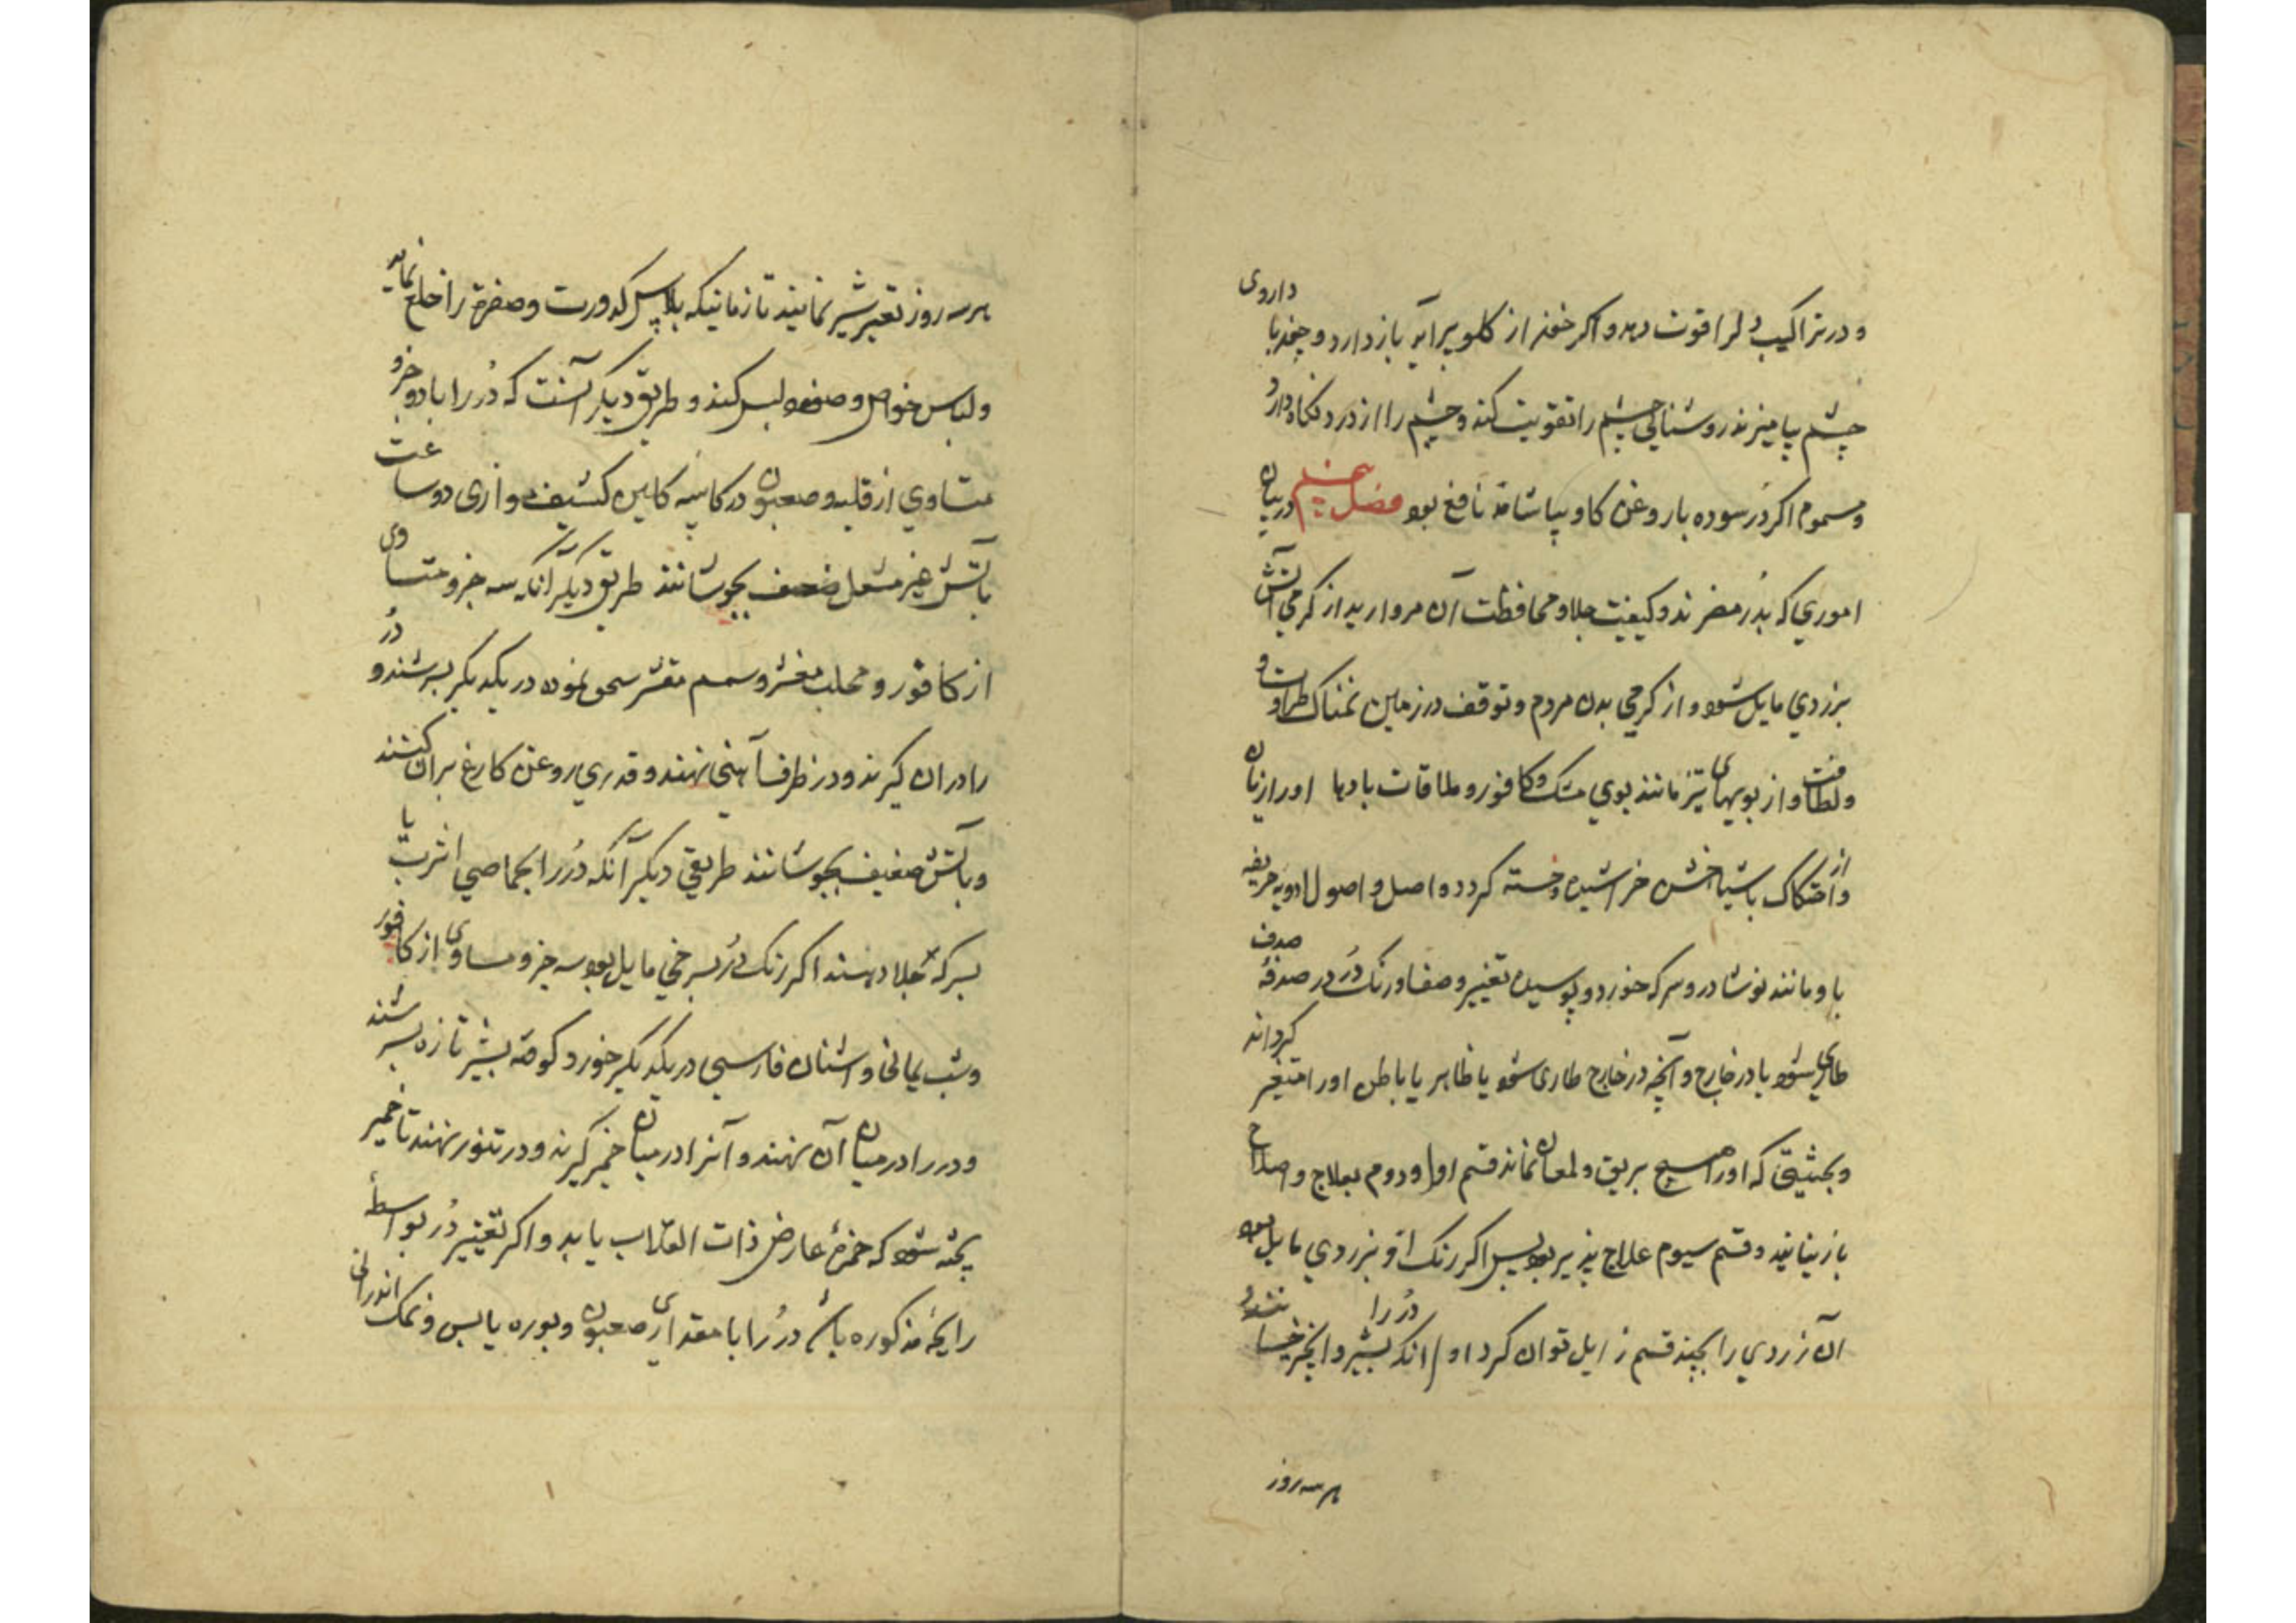 و در تراکیب دلرا قوت دهد و اکر خون از کلو برآید باز دارد و چون با داروی
چشم بیامیزند روشنایی چشم را تقویت کند و چشم را از درد نکاه دارد
و مسموم اکر دُر سوده با روغن کاو بیاشامد نافع بود فصل پنجم در بیان
اموری که بدُر مضرند و کیفیت جلا و محافظت آن مروارید از کرمی آتش
بزردی مایل شود و از کرمی بدن مردم و توقف در زمین نمناک طراوت و
ولطافت و از بویهای تیز مانند بوی مشک و کافور و ملاقات بادها او را زیان
و از احتکاک باشیا خشن خراشیده و خسته کردد و اصل و اصول ادویه حریفه
با و مانند نوشادر و سرکه خورد و پوسیده تغییر و صفا و رنک دُر در صدفهٔ صدف
طاری شود یا در خارج و آنچه در خارج طاری شود یا ظاهر یا باطن او را متغیر کرداند
و بحیثیتی که او را هیچ بریق و لمعان نماند قسم اول و دوم بعلاج و اصلاح
باز نیایند و قسم سیوم علاج پذیر بود پس اکر رنک او بزردی مایل بود
آن زردی را بچند قسم زایل توان کرد اول انکه دُر را بشیر و انجیر خیسانند و
هر سه روز
هر سه روز تغییر شیر نمایند تا زمانیکه بلاس کدورت و صفرة را خلع نماید
و لباس خواص و صفوه لبس کند و طریق دیکر آنست که دُر را با دو جزو
متساوی از قلیه و صعبون در کاسه کاین کثیف واری دو ساعت
بآتش غیر مشعل ضعف بجوشانند طریق دیکر آنکه سه جزو متساوی
از کافور و محلب مقشر و سمسم مقشر سحق نموده در یکدیکر بسرشند و دُر
را در ان کیرند و در ظرف آهنی نهند و قدری روغن کارغ بران کنند
و بآتش ضعیف بجوشانند طریقی دیکر آنکه دُر را بحماض اترج یا
بسرکه جلا دهند اکر رنک دُر بسرخی مایل بود سه جزو مساوی از کافور
و شب یمانی و اشنان فارسی در یکدیکر خورد کوفته بشیر تازه بسرشند
و در را در میان آن نهند و آنرا در میان خمیر کیرند و در تنور نهند تا خمیر
پخته شود که حمرهٔ عارض ذات القلاب یابد و اکر تغییر دُر بواسطهٔ
رایحهٔ مذکوره باشد دُر را با مقداری صعبون و بوره یابس و نمک اندرانی